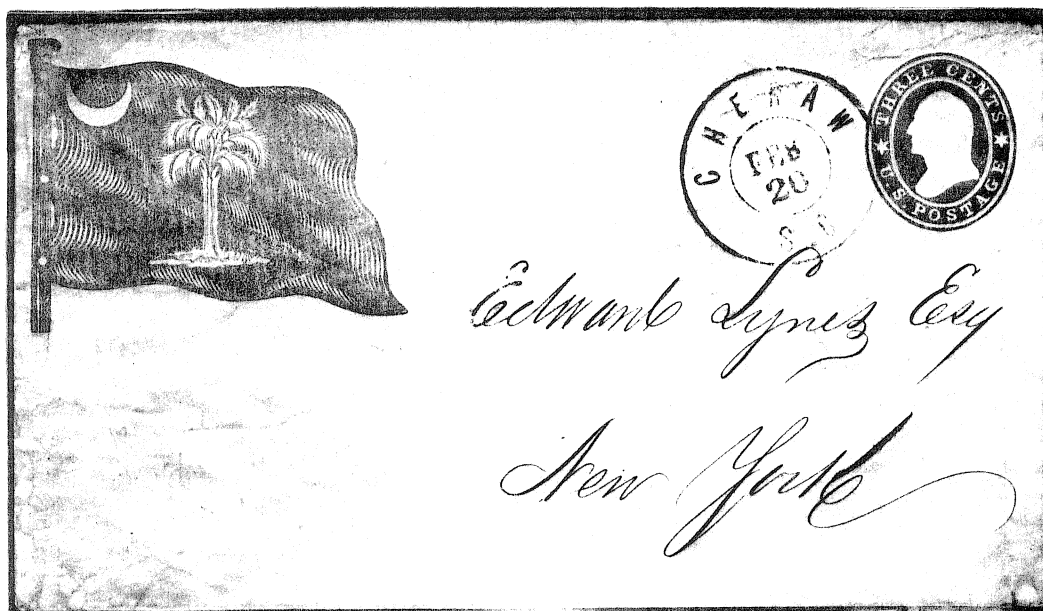 CHERAW
FEB
20
S.C.
THREE CENTS
U.S. POSTAGE
Edward Esq
New York